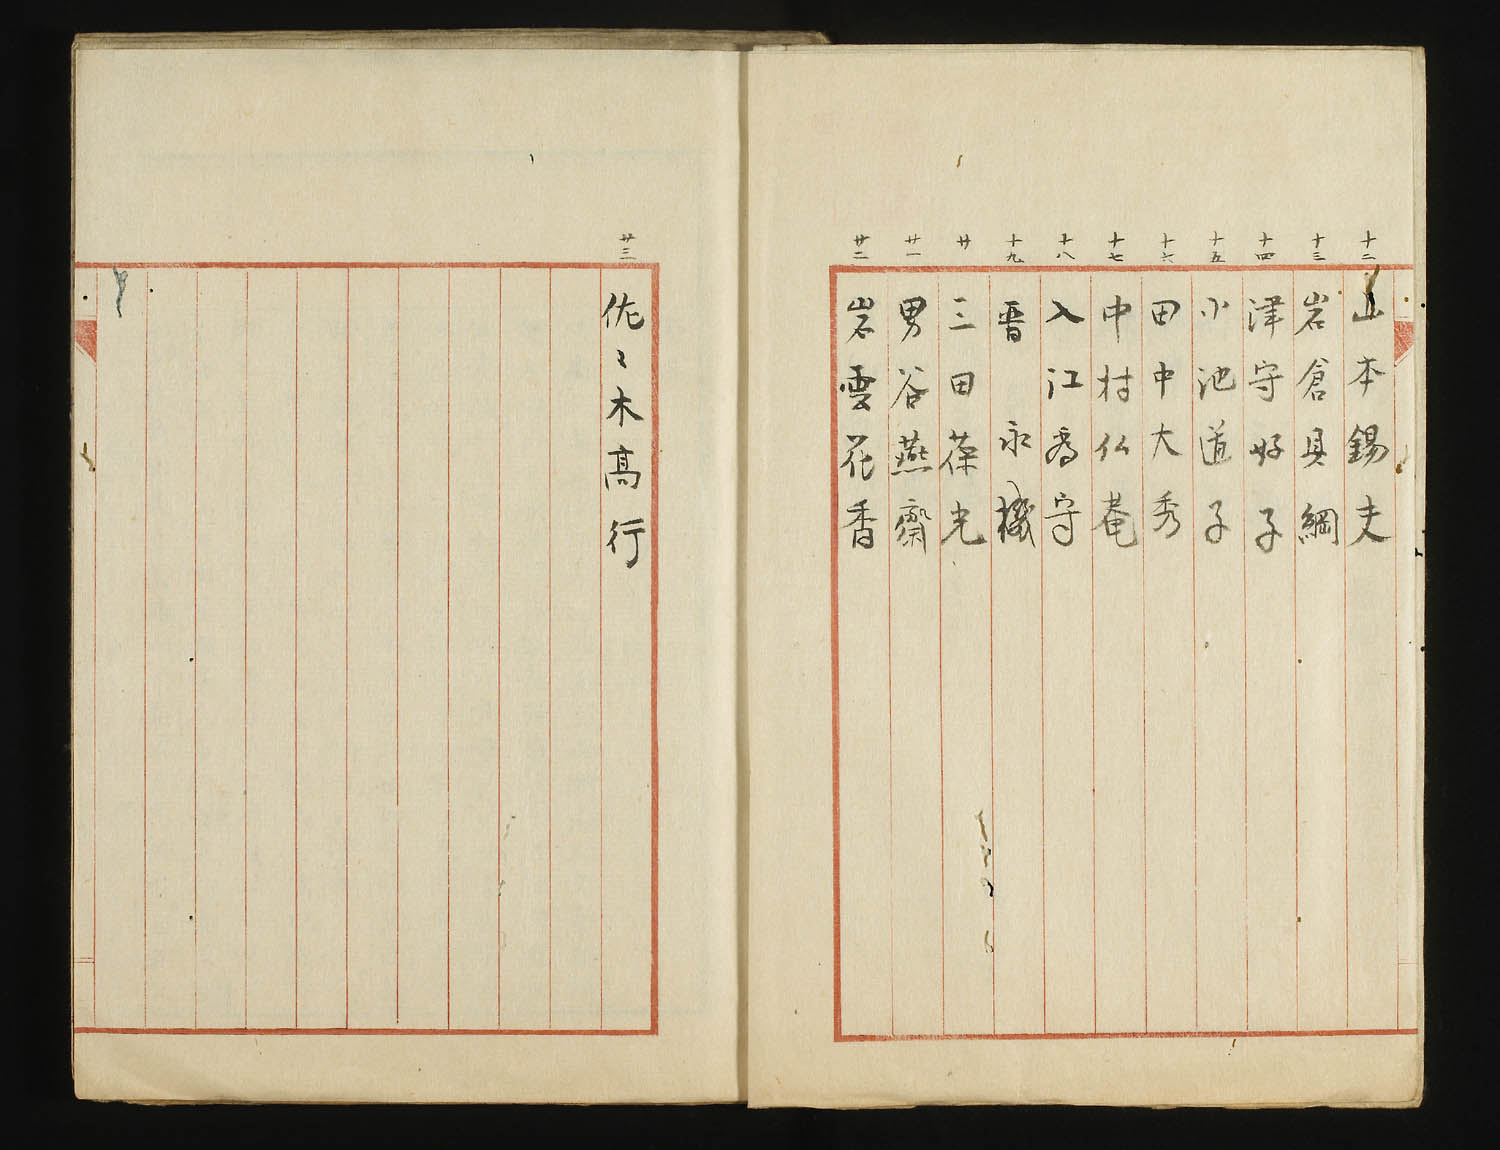 十二 山本錫夫
十三 岩倉具綱
十四 津守好子
十五 小池道子
十六 田中大秀
十七 中村仏菴
十八 入江為守
十九 晋永機
廿 三田葆光
廿一 男谷燕齋
廿二 岩雲花香
廿三 佐〻木高行